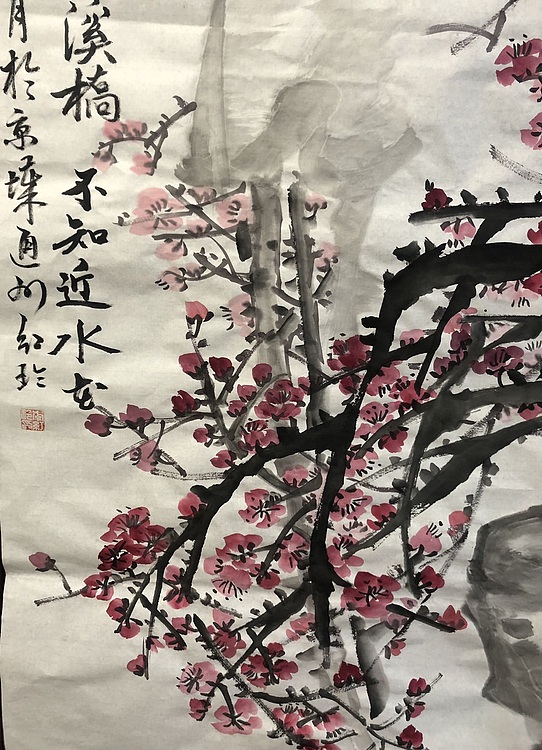 溪橋不知近水花
月於京華通州紅玲